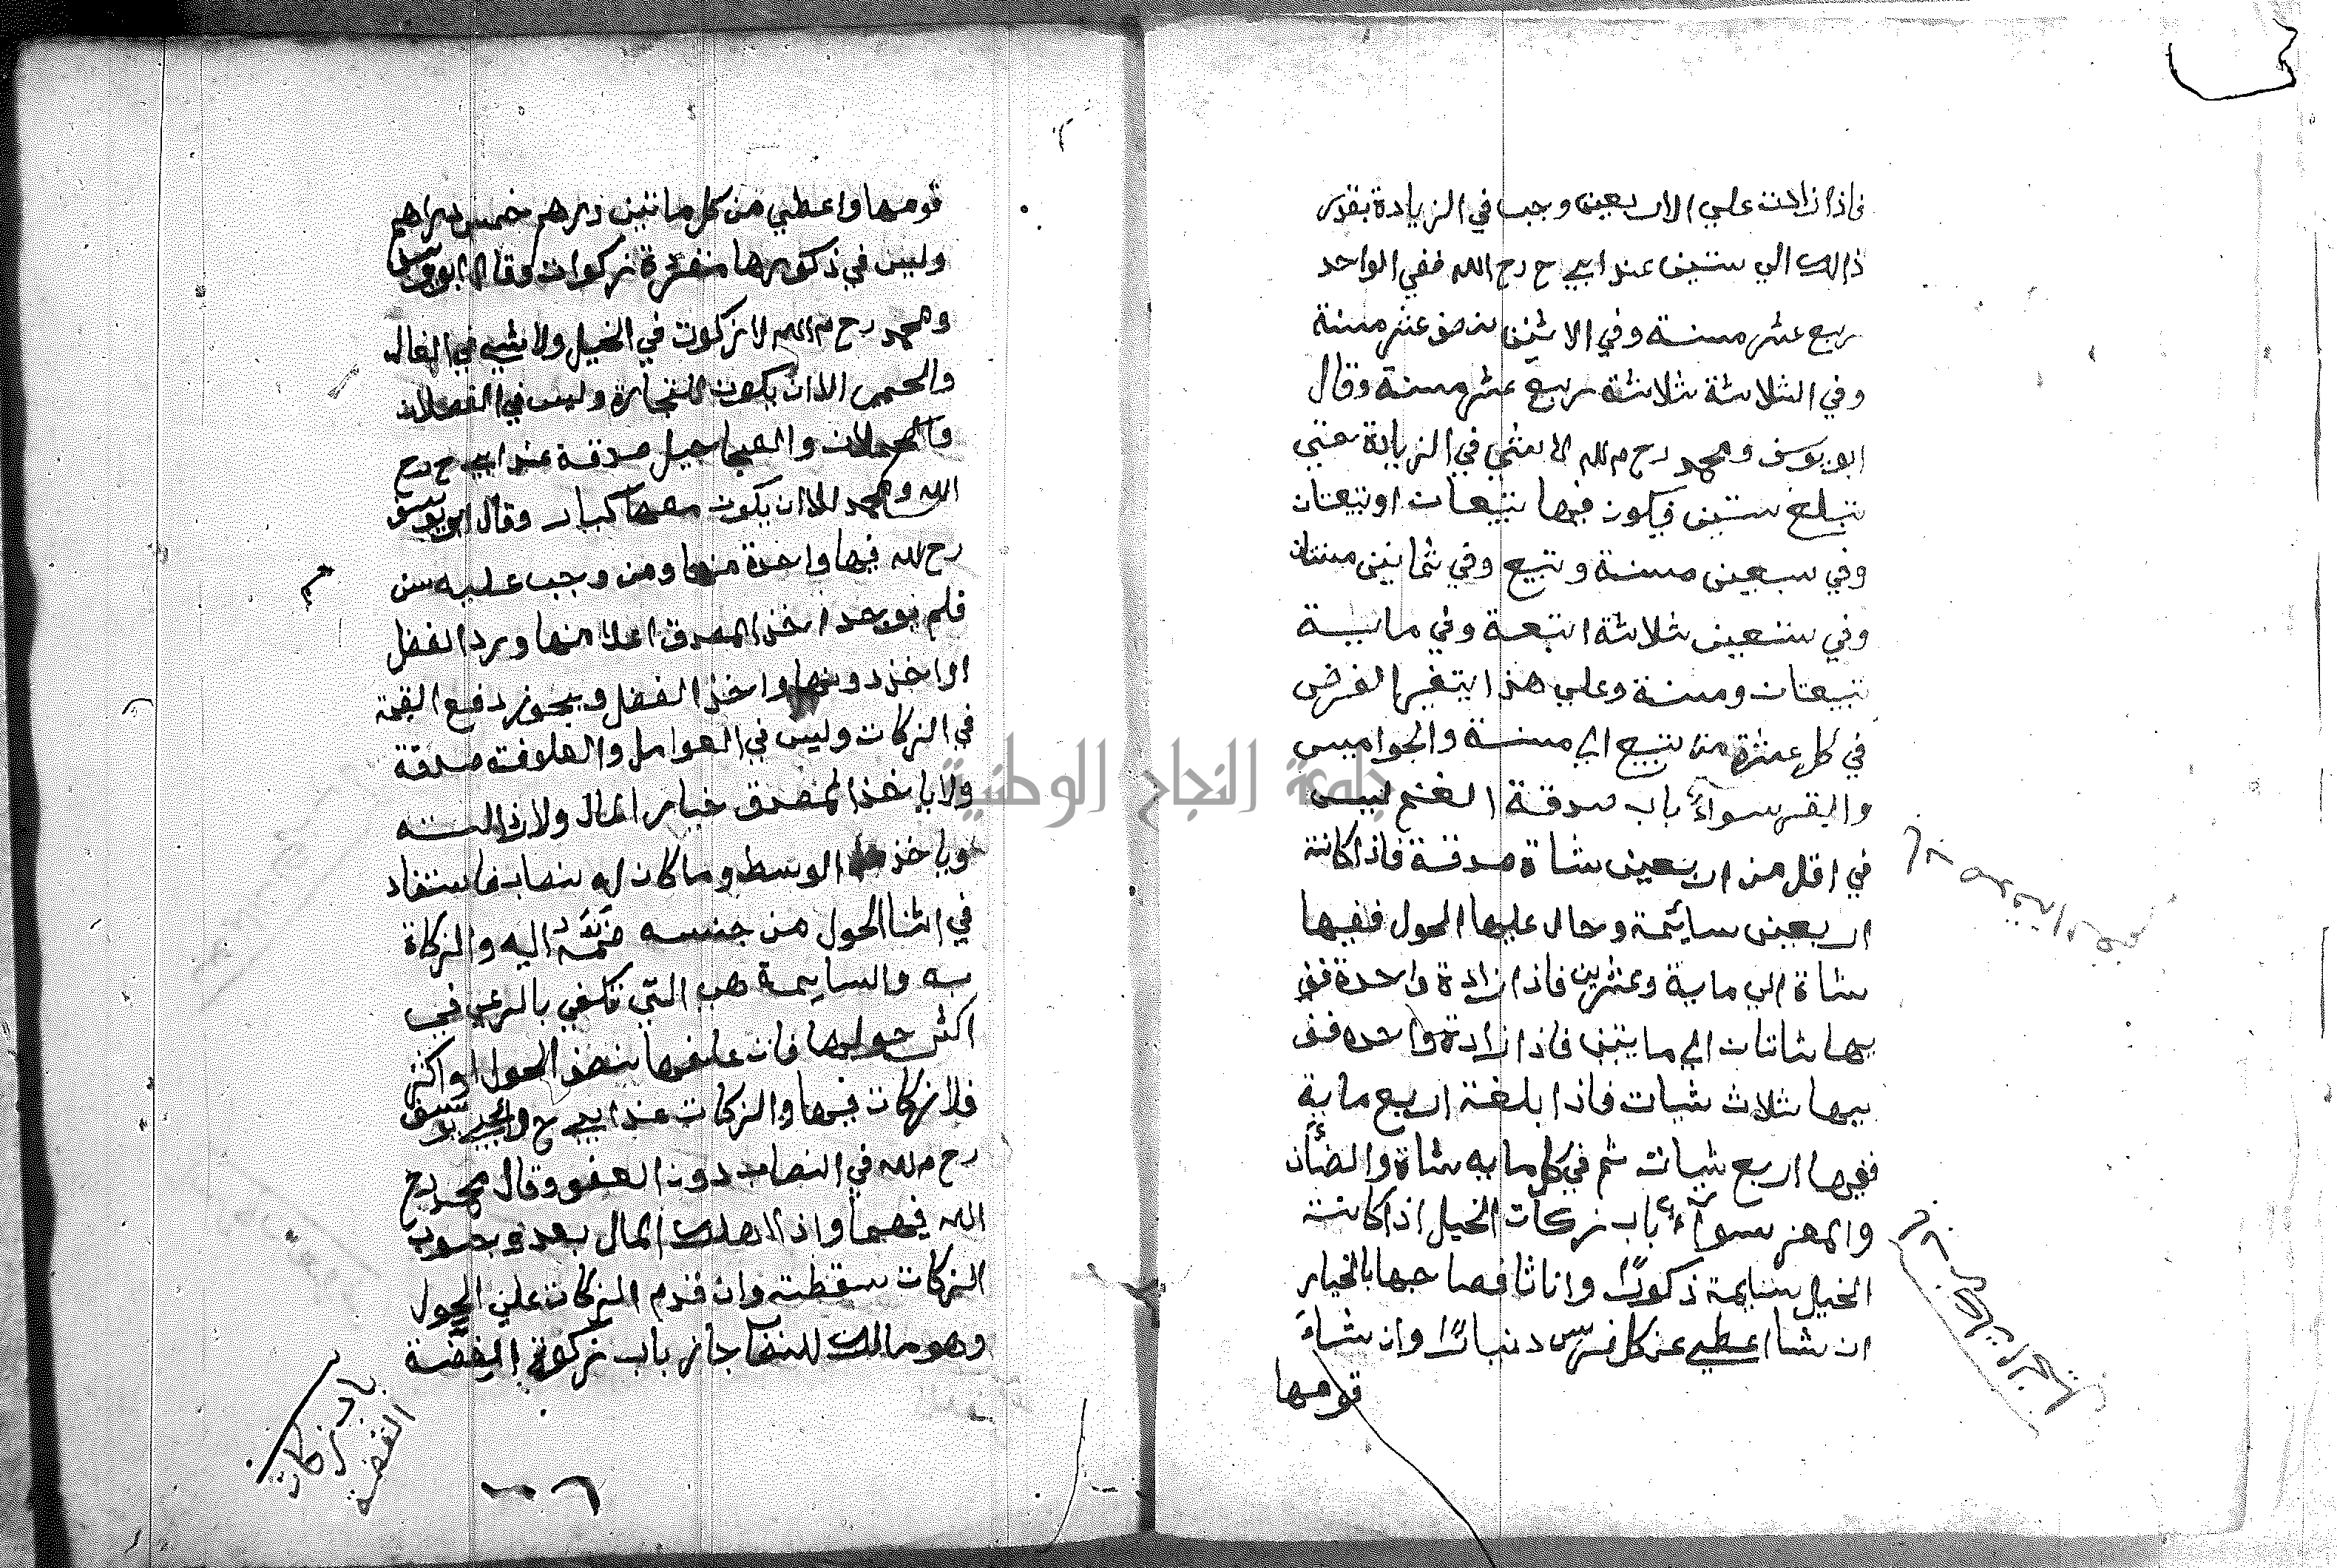 فاذا زادت علي الاربعين وجب في الزيادة بقدر
ذالك الي ستين عند ابي ح رح الله ففي الواحد
ربع عشر مسنة وفي الاثنين نصف عشر مسنة
وفي الثلاثة ثلاثة ربع عشر مسنة وقال
ابو يوسف ومحمد رح م لله لا شي في الزيادة حتي
تبلغ ستين فيكون فيها تبيعات اوتبيعتان
وفي سبعين مسنة وتبيع وفي ثمانين مسنتان
وفي تسعين ثلاثة اتبعة وفي ماية
تبيعتان ومسنة وعلي هذا يتغير الفرض
في كل عشرة من تبيع الي مسنة والجواميس
والبقر سوآء باب صدقة الغنم ليس
في اقل من اربعين شاة صدقة فاذا كانة
اربعين سائمة وحال عليها الحول ففيها
شاة الي ماية وعشرين فاذا زادة واحدة فف
يها شاتان الي مايتين فاذا زادة واحده فف
يها ثلاث شيات فاذا بلغة اربع ماية
ففيها اربع شيات ثم في كل مايه شاة والضأن
والمعز سوآء باب زكات الخيل اذا كانت
الخيل سايمة ذكورًا واناثا فصاحبها بالخيار
ان شا اعطي عن كل فرس دينارًا وان شاءَ
قومها
قومها واعطي من كل ماتين درهم خمس دراهم
وليس في ذكورها منفردة زكوات وقال ابويوسف
ومحمد رح م الله لا زكوت في الخيل ولا شي في البغال
والحمير الا ان يكون للتجارة وليس في الفصلان
والحملان والعجاجيل صدقة عند ابي ح رح
الله ومحمد الا ان يكون معها كبار وقال ابويوسف
رح لله فيها واحدة منها ومن وجب عليه سن
فلم يوجد اخذ المصدق اعلا منها ورد الفضل
او اخذ دونها واخذ الفضل ويجوز دفع القيمة
في الزكات وليس في العوامل والعلافة صدقة
ولا ياخذ المصدق خيار المال ولا رذالته
وياخذ الوسط وما كان له نصاب فاستفاد
في اثنا الحول من جنسه ضمّه اليه والزكاة
به والسايمة هي التي تكفي بالرعي في
اكثر حولها فان علفها نصف الحول او اكثر
فلا زكات فيها والزكات عند ابي ح وابي يوسف
رح م لله في النصاب دون العفو وقال محمد رح
الله فيهما واذا هلك المال بعد وجوب
الزكات سقطت وان قدم الزكات علي الحول
وهو مالك للنصا جاز باب زكوة الفضة
باب زكات
الفضة